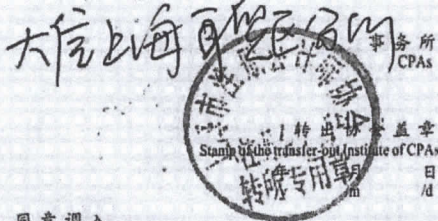 大信上海自贸区分所
事务所
CPAs
转出协会盖章
Stamp of the transfer-out Institute of CPAs
日
/m /d
同意调入
市注册会计师协会
转所专用章